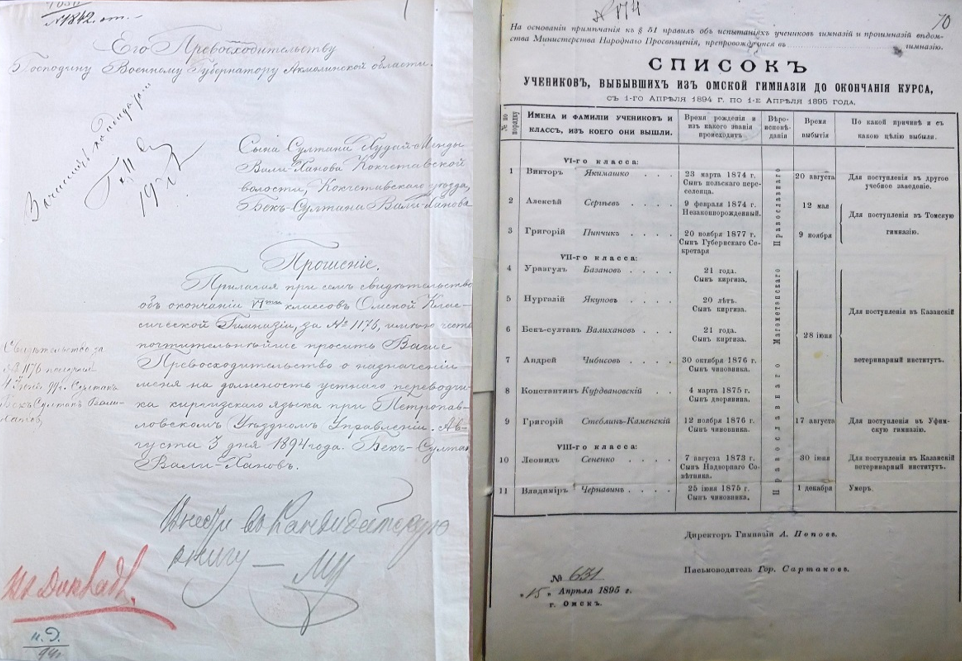 № 1842.
Его Превосходительству
Господину Военному Губернатору Акмолинской области.
Сына Султана
Вали-Ханова Кокчетавской
волости, Кокчетавского уезда,
Бек-Султана Вали-Ханова
Прошение.
Прилагая при сем свидетельство
об окончании классов Омской Клас-
сической Гимназии, за № 1176, имею честь
почтительнейше просить Ваше
Превосходительство о назначении
меня на должность устнаго переводчи-
ка киргизскаго языка при Петропав-
ловском Уездном Управлении. Ав-
густа 3 дня 1894 года. Бек-Султан
Вали-Ханов.
Свидетельство за
№ 1176 получил
Бек Султан Вали-
Ханов
Внести в Кандидатскую
книгу —
70
На основаніи примѣчанія къ § 51 правилъ объ испытаніяхъ учениковъ гимназій и прогимназій вѣдом-
ства Министерства Народнаго Просвѣщенія, препровождается въ гимназію.
СПИСОКЪ
УЧЕНИКОВЪ, ВЫБЫВШИХЪ ИЗЪ ОМСКОЙ ГИМНАЗІИ ДО ОКОНЧАНІЯ КУРСА,
СЪ 1-ГО АПРѢЛЯ 1894 Г. ПО 1-Е АПРѢЛЯ 1895 ГОДА.
№ по порядку
Имена и фамиліи учениковъ и классъ, изъ коего они вышли.
Время рожденія и изъ какого званія происходитъ
Вѣроисповѣданія
Время выбытія
По какой причинѣ и съ какою цѣлію выбыли.
VI-го класса:
1 Викторъ Якимашко 23 марта 1874 г. Сынъ польскаго переселенца. Православнаго 20 августа Для поступленія въ другое учебное заведеніе.
2 Алексѣй Сергѣевъ 9 февраля 1874 г. Незаконнорожденный. 12 мая Для поступленія въ Томскую гимназію.
3 Григорій Пинчикъ 20 ноября 1877 г. Сынъ Губернскаго Секретаря 9 ноября
VII-го класса:
4 Уразгулъ Базановъ 21 года. Сынъ киргиза. Магометанскаго 28 іюня Для поступленія въ Казанскій ветеринарный институтъ.
5 Нургазій Якуповъ 20 лѣтъ. Сынъ киргиза.
6 Бекъ-султанъ Валихановъ 21 года. Сынъ киргиза.
7 Андрей Чибисовъ 30 октября 1876 г. Сынъ чиновника. Православнаго
8 Константинъ Курдвановскій 4 марта 1875 г. Сынъ дворянина.
9 Григорій Стеблинъ-Каменскій 12 ноября 1876 г. Сынъ чиновника. 17 августа Для поступленія въ Уфимскую гимназію.
VIII-го класса:
10 Леонидъ Сененко 7 августа 1873 г. Сынъ Надворнаго Совѣтника. 30 іюня Для поступленія въ Казанскій ветеринарный институтъ.
11 Владиміръ Чернавинъ 25 іюня 1875 г. Сынъ чиновника. 1 декабря Умеръ.
Директоръ Гимназіи А. Попоев.
Письмоводитель Гор. Сартаковъ.
№ 631
„15" Апрѣля 1895 г.
г. Омскъ.